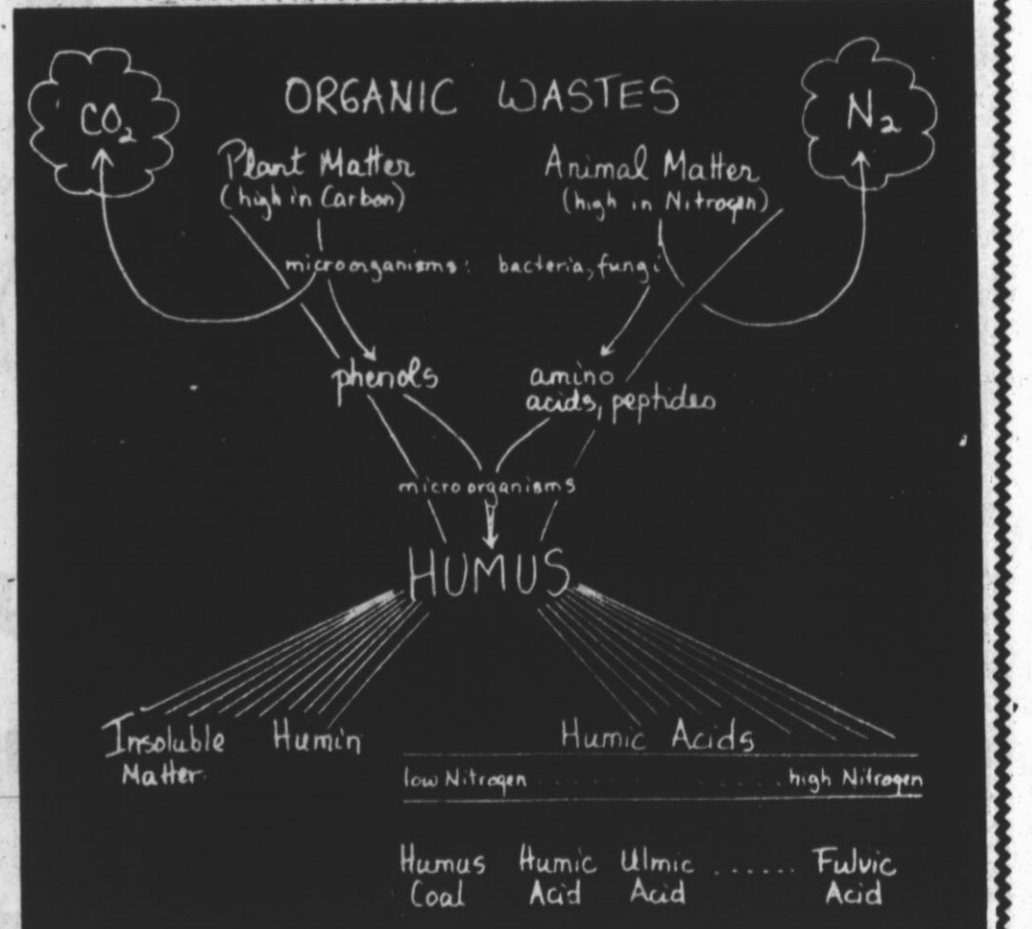 ORGANIC WASTES
CO₂
N₂
Plant Matter
(high in Carbon)
Animal Matter
(high in Nitrogen)
microorganisms: bacteria, fungi
phenols
amino
acids, peptides
microorganisms
HUMUS
Insoluble
Matter
Humin
Humic Acids
low Nitrogen . . . . . . . . . . high Nitrogen
Humus
Coal
Humic
Acid
Ulmic
Acid
. . . . . .
Fulvic
Acid